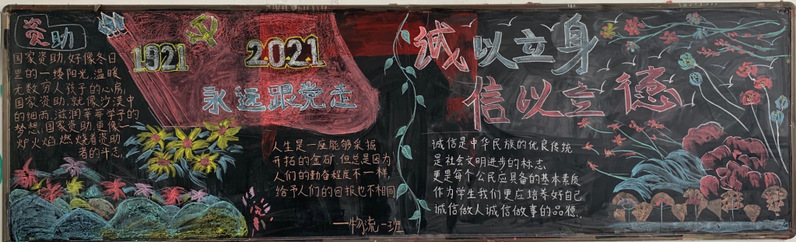 资助
国家资助,好像冬日
里的一缕阳光,温暖
无数穷人孩子的心房;
国家资助,就像沙漠中
的细雨,滋润莘莘学子的
梦想;国家资助,更像
炉火焰,燃烧着资助
者的斗志。
1921
2021
永远跟党走
人生是一座能够采掘
开拓的金矿,但总是因为
人们的勤奋程度不一样,
给予人们的回报也不相同
——物流一班
诚以立身
信以立德
诚信是中华民族的优良传统
是社会文明进步的标志,
更是每个公民应具备的基本素质
作为学生我们更应培养好自己
诚信做人诚信做事的品德。